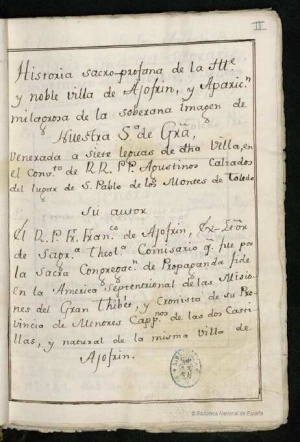 II
Historia sacro-profana de la Ill.e
y noble villa de Ajofrin, y Aparic.n
milagrosa de la soberana imagen de
Nuestra S.a de Grã,
Venerada a siete leguas de dha Villa, en
el Conv.to de R.R. P.P. Agustinos Calzados
del lugar de S. Pablo de los Montes de Toledo
Su autor
El R. P. Fr. Fran.co de Ajofrin, Ex-Letor
de Sagr.a Theol.a Comisario q.e fue por
la Sacra Congregac.n de Propaganda fide
en la America Septentrional de las Misio-
nes del Gran Thibet, y Cronista de su Pro-
vincia de Menores Capp.nos de las dos Casti-
llas, y natural de la misma villa de
Ajofrin.
© Biblioteca Nacional de España